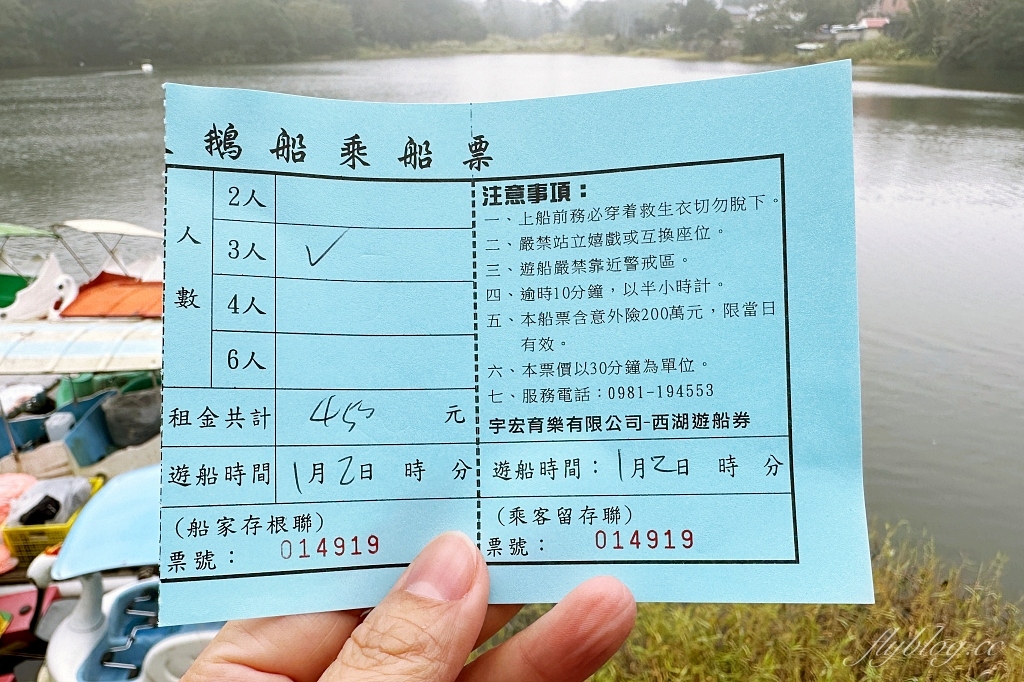 鵝船乘船票
人數
2人
3人 ✓
4人
6人
租金共計 450 元
遊船時間 1月2日 時 分
(船家存根聯)
票號： 014919
注意事項：
一、上船前務必穿着救生衣切勿脫下。
二、嚴禁站立嬉戲或互換座位。
三、遊船嚴禁靠近警戒區。
四、逾時10分鐘，以半小時計。
五、本船票含意外險200萬元，限當日
有效。
六、本票價以30分鐘為單位。
七、服務電話：0981-194553
宇宏育樂有限公司-西湖遊船券
遊船時間：1月2日 時 分
(乘客留存聯)
票號： 014919
flyblog.cc